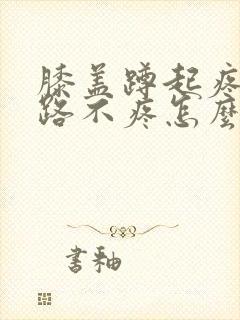 膝盖蹲起疼
路不疼怎麼
書釉